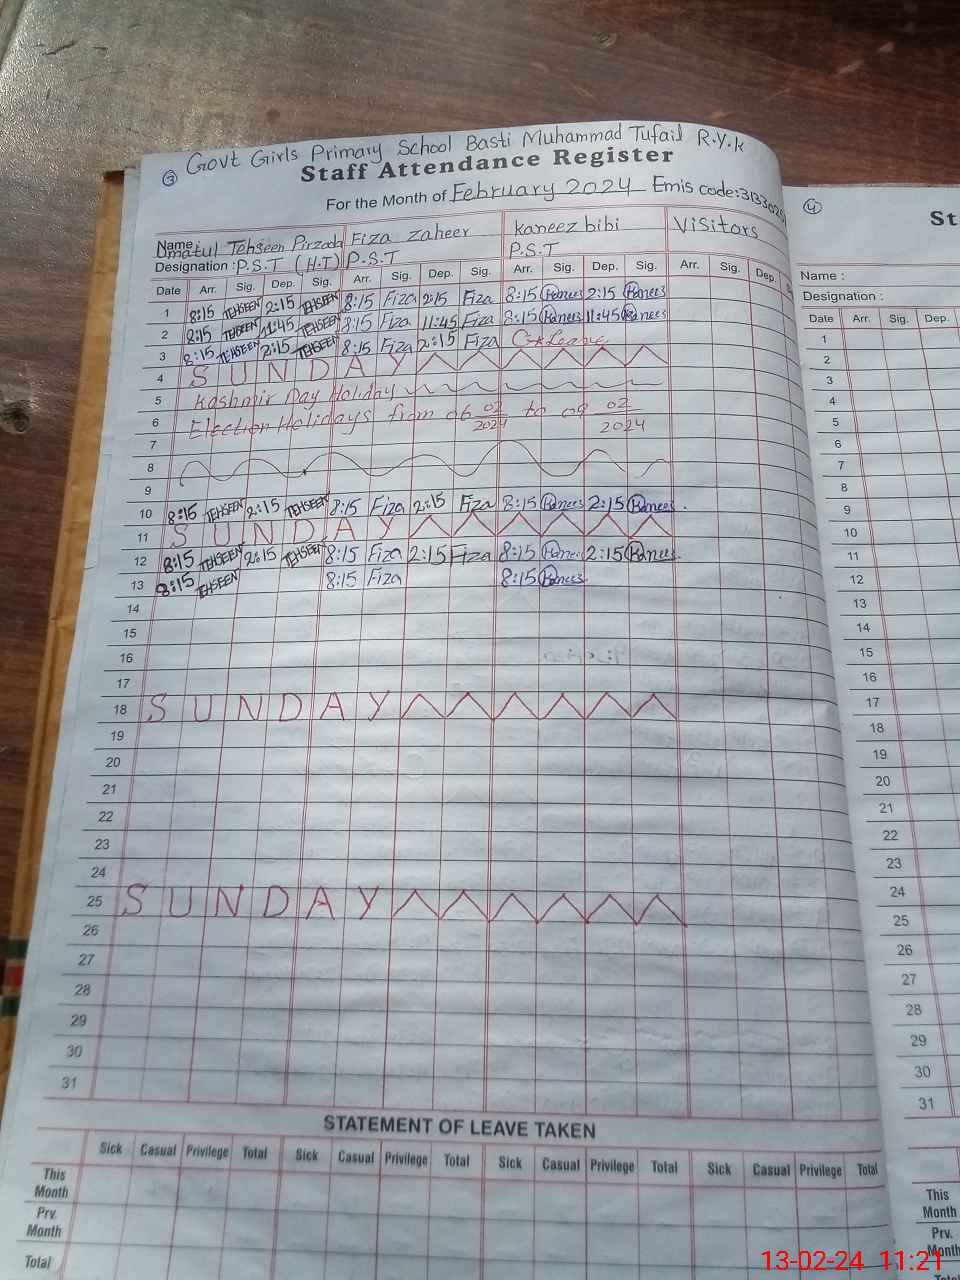 ③ Govt Girls Primary School Basti Muhammad Tufail R.Y.K
Staff Attendance Register
For the Month of February 2024 Emis code:
Name Umatul Tehseen Pirzada Fiza zaheer kaneez bibi Visitors
Designation : P.S.T (H.T) P.S.T P.S.T
Date Arr. Sig. Dep. Sig. Arr. Sig. Dep. Sig. Arr. Sig. Dep. Sig. Arr. Sig. Dep.
1 8:15 TEHSEEN 2:15 TEHSEEN 8:15 Fiza 2:15 Fiza 8:15 Kanees 2:15 Kanees
2 8:15 TEHSEEN 11:45 TEHSEEN 8:15 Fiza 11:45 Fiza 8:15 Kanees 11:45 Kanees
3 8:15 TEHSEEN 2:15 TEHSEEN 8:15 Fiza 2:15 Fiza Leave
4 SUNDAY
5 Kashmir Day Holiday
6 Election Holidays from 06 02/2024 to 09 02/2024
7
8
9
10 8:15 TEHSEEN 2:15 TEHSEEN 8:15 Fiza 2:15 Fiza 8:15 Kanees 2:15 Kanees
11 SUNDAY
12 8:15 TEHSEEN 2:15 TEHSEEN 8:15 Fiza 2:15 Fiza 8:15 Kanees 2:15 Kanees
13 8:15 TEHSEEN 8:15 Fiza 8:15 Kanees
14
15
16
17
18 SUNDAY
19
20
21
22
23
24
25 SUNDAY
26
27
28
29
30
31
STATEMENT OF LEAVE TAKEN
Sick Casual Privilege Total Sick Casual Privilege Total Sick Casual Privilege Total Sick Casual Privilege Total
This Month
Prv. Month
Total
④
St
Name :
Designation :
Date Arr. Sig. Dep.
1
2
3
4
5
6
7
8
9
10
11
12
13
14
15
16
17
18
19
20
21
22
23
24
25
26
27
28
29
30
31
This Month
Prv. Month
13-02-24 11:21